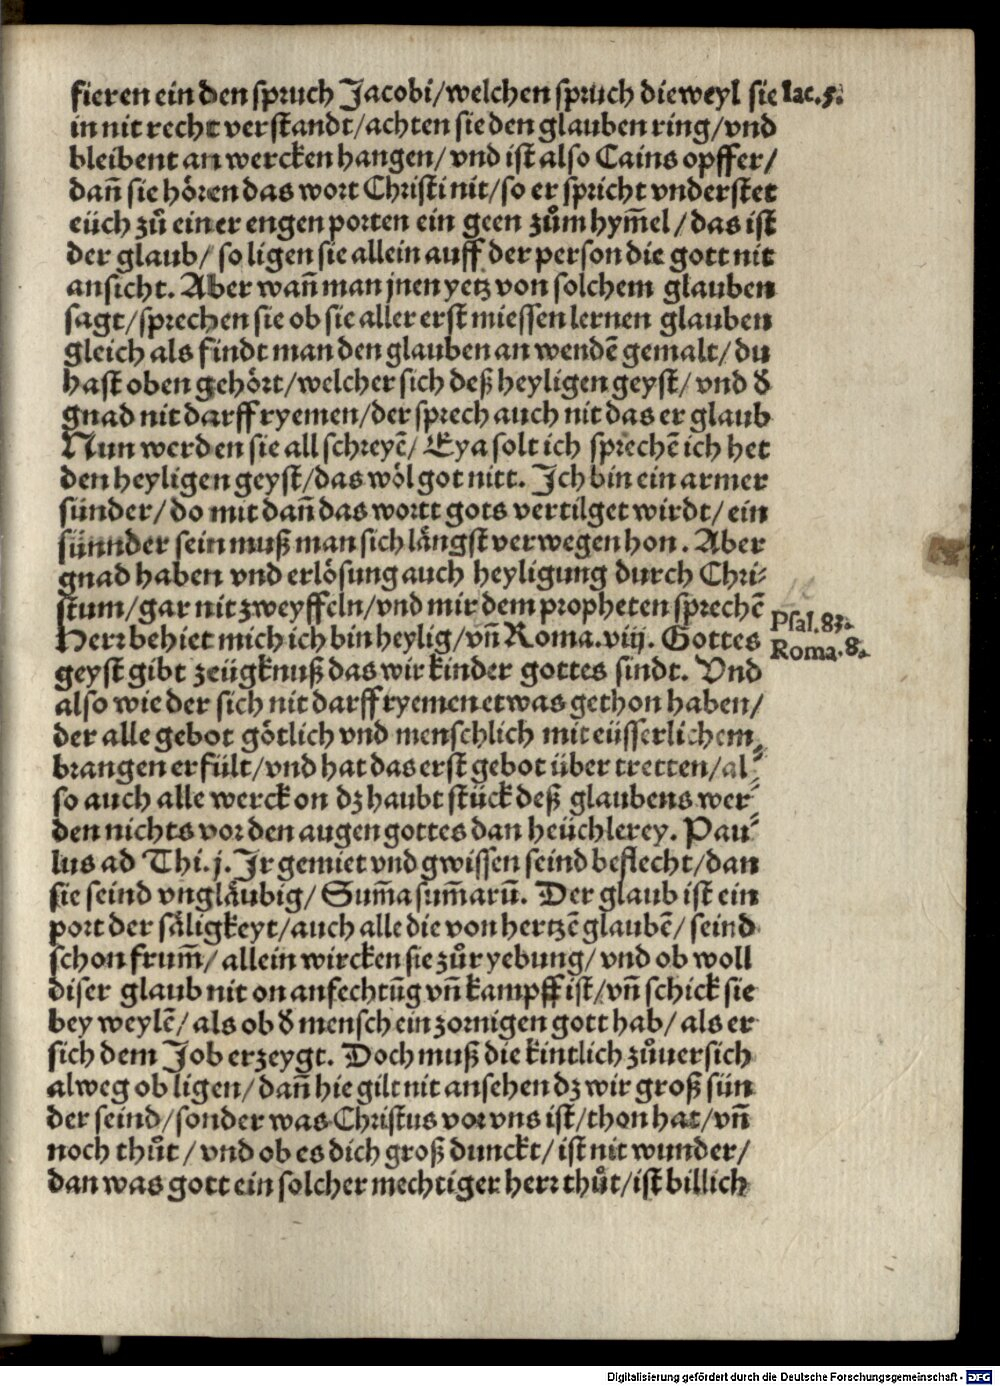 fieren ein den spruch Jacobi/welchen spruch dieweyl sie Iac.5.
in nit recht verstandt/achten sie den glauben ring/vnd
bleibent an wercken hangen/ vnd ist also Cains opffer/
dañ sie hören das wort Christi nit/so er spricht vnderstet
eüch zů einer engen porten ein geen zům hym̃el/das ist
der glaub/ so ligen sie allein auff der person die gott nit
ansicht. Aber wañ man jnen yetz von solchem glauben
sagt/sprechen sie ob sie aller erst miessen lernen glauben
gleich als findt man den glauben an wendẽ gemalt/ du
hast oben gehört/welcher sich deß heyligen geyst/ vnd d
gnad nit darff ryemen/der sprech auch nit das er glaub
Nun werden sie all schreyẽ/ Eya solt ich sprechẽ ich het
den heyligen geyst/das wöl got nitt. Ich bin ein armer
sünder/ do mit dañ das wortt gots vertilget wirdt/ ein
sünnder sein muß man sich längst verwegen hon. Aber
gnad haben vnd erlösung auch heyligung durch Chri-
stum/gar nit zweyffeln/vnd mir dem propheten sprechẽ
Herr behiet mich ich bin heylig/vñ Roma.viij. Gottes Psal.83.
geyst gibt zeügknuß das wir kinder gottes sindt. Vnd Roma.8.
also wie der sich nit darff ryemen etwas gethon haben/
der alle gebot götlich vnd menschlich mit eüsserlichem
brangen erfült/vnd hat das erst gebot über tretten/al-
so auch alle werck on dz haubt stück deß glaubens wer-
den nichts vor den augen gottes dan heüchlerey. Pau-
lus ad Thi.j. Ir gemiet vnd gwissen seind beflecht/dan
sie seind vngläubig/ Sum̃a sum̃arũ. Der glaub ist ein
port der säligkeyt/auch alle die von hertzẽ glaubẽ/ seind
schon frum̃/ allein wircken sie zůr yebung/ vnd ob woll
diser glaub nit on anfechtũg vñ kampff ist/vñ schick sie
bey weylẽ/ als ob d mensch ein zornigen gott hab/ als er
sich dem Job erzeygt. Doch muß die kintlich zůuersich
alweg ob ligen/ dañ hie gilt nit ansehen dz wir groß sün
der seind/sonder was Christus vor vns ist/thon hat/vñ
noch thůt/ vnd ob es dich groß dunckt/ist nit wunder/
dan was gott ein solcher mechtiger herr thůt/ist billich
Digitalisierung gefördert durch die Deutsche Forschungsgemeinschaft - DFG